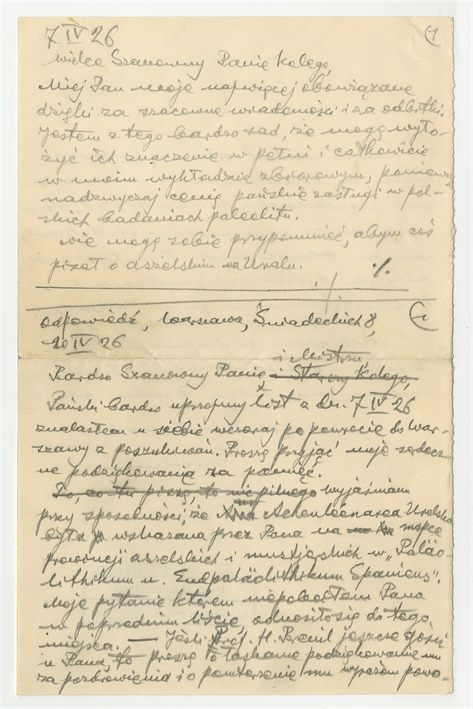 7 IV 26
wielce Szanowny Panie Kolego,
Miej Pan moje najwięcej obowiązane
dzięki za szacowne wiadomości i za odbitki.
Jestem z tego bardzo rad, że mogę wyło-
żyć ich znaczenie w pełni i całkowicie
w moim wykładzie zbiorowym, ponieważ
nadzwyczaj cenię pańskie zasługi w pol-
skich badaniach paleolitu.
nie mogę sobie przypomnieć, abym coś
pisał o aszelskim na Uralu. %
Odpowiedź, Warszawa, Śniadeckich 8,
20 IV 26
i Mistrzu
Bardzo Szanowny Panie i Starszy Kolego,
Pański bardzo uprzejmy list z dn. 7 IV 26
znalazłem u siebie wczoraj po powrocie do War-
szawy z poszukiwań. Proszę przyjąć moje serdecz-
ne podziękowania za pamięć.
To, co tu piszę, to nic pilnego wyjaśniam
przy sposobności, że Uralska
była wskazana przez Pana na mapce
prowincji aszelskich i mustierskich w „Paläo-
lithikum u. Endpaläolithikum Spaniens".
Moje pytanie którem niepokoiłem Pana
w poprzednim liście, odnosiło się do tego
miejsca. — Jeśli Prof. H. Breuil jeszcze gości
u Pana, to proszę o łaskawe podziękowanie mu
za pozdrowienia i o powtórzenie mu wyrazów powa-